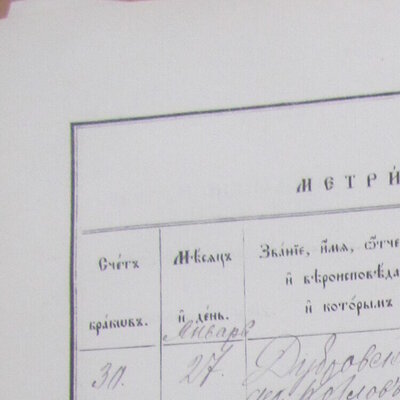 МЕТРИ́
Сче́тъ
бра́кѡвъ.
Мѣсѧцъ
и҆ де́нь.
Зва́нїе, и҆́мѧ, ѻ҆́тче
и҆ вѣроисповѣ́да
и҆ кото́рымъ
Январь
30.
27.
Дубровск